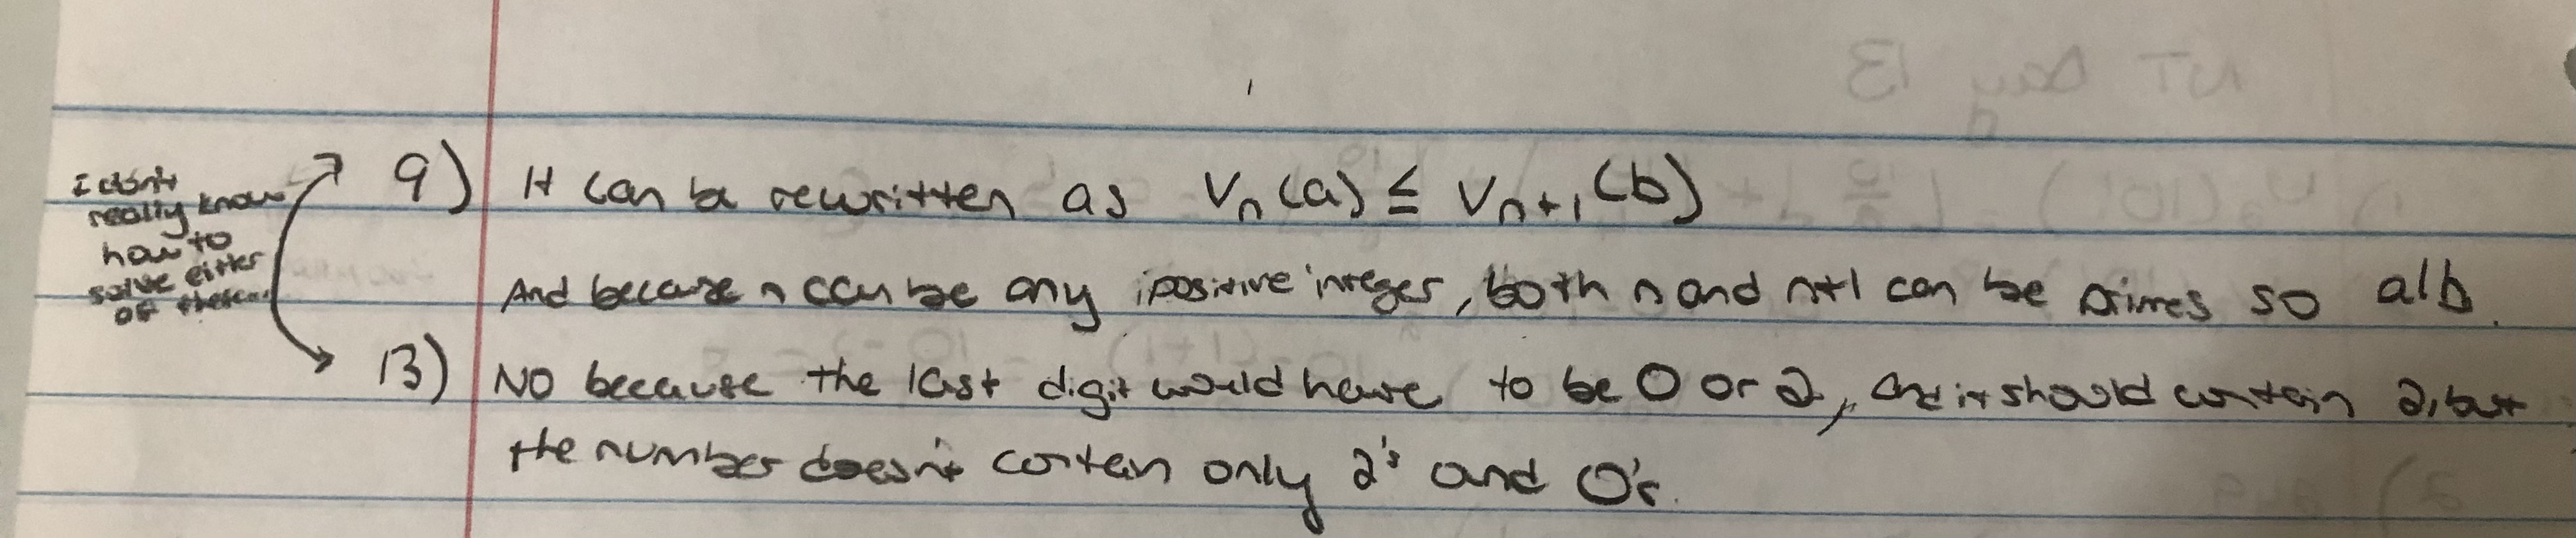 NT Day 13
I don't
really know
how to
solve either
of these...
9) It can be rewritten as Vn(a) ≤ Vn+1(b)
And because n can be any positive integer, both n and n+1 can be primes so a|b.
13) NO because the last digit would have to be 0 or 2, and it should contain 2, but
the number doesn't contain only 2's and 0's.